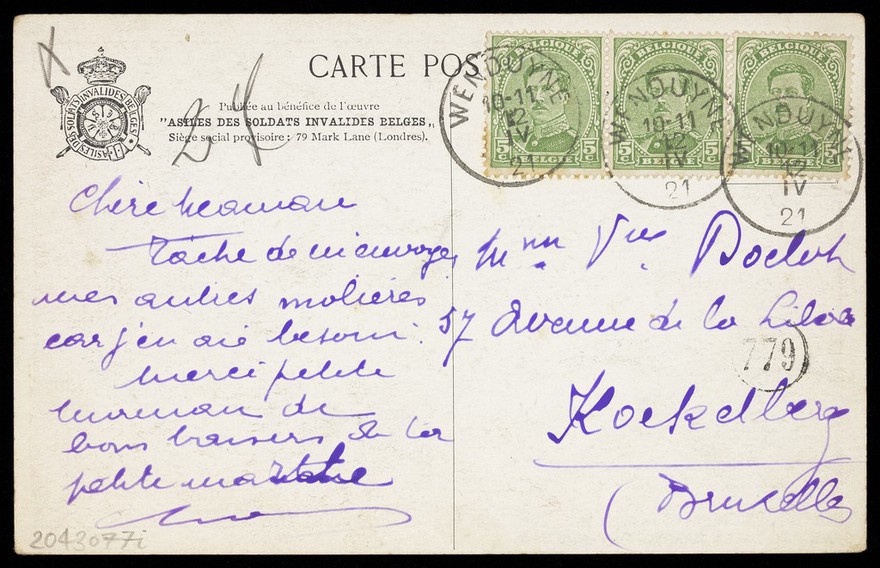 CARTE POS
Publiée au bénéfice de l'œuvre
"ASILES DES SOLDATS INVALIDES BELGES"
Siège social provisoire : 79 Mark Lane (Londres).
ASILES DES SOLDATS INVALIDES BELGES
BELGIQUE
5c BELGIË 5c
BELGIQUE
5c BELGIË 5c
BELGIQUE
5c BELGIË 5c
WENDUYNE
10-11
12
IV
21
WENDUYNE
10-11
12
IV
21
WENDUYNE
10-11
12
IV
21
Chère Maman
Tâche de m'envoyer
mes autres molières
car j'en ai besoin.
Merci petite
maman de
bons baisers de la
petite
Mme Vve
57 Avenue de la
779
Koekelberg
(Bruxelles
2043077i